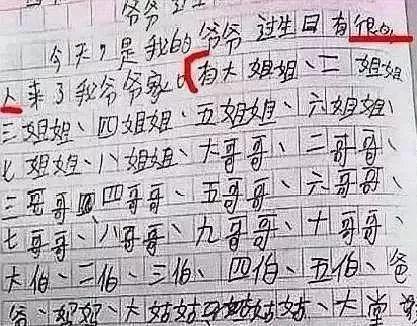 爷爷过生
今天，是我的爷爷过生日有很多
人来了我爷爷家。有大姐姐、二姐姐
三姐姐、四姐姐、五姐姐、六姐姐、
七姐姐、八姐姐、大哥哥、二哥哥、
三哥哥、四哥哥、五哥哥、六哥哥、
七哥哥、八哥哥、九哥哥、十哥哥、
大伯、二伯、三伯、四伯、五伯、爸
爸、妈妈、大姑姑、姑姑、大堂